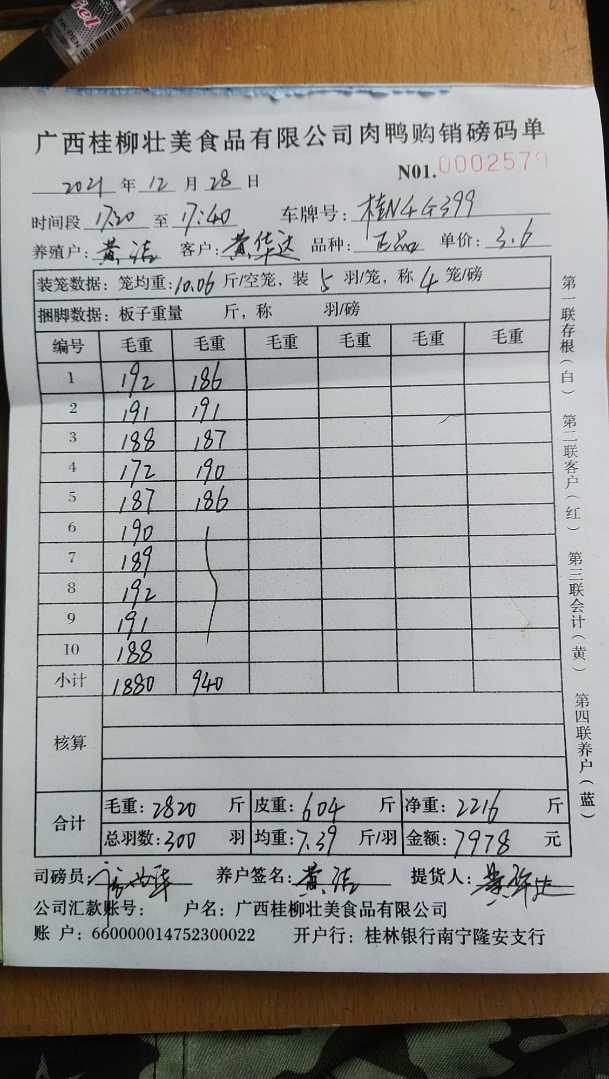 广西桂柳壮美食品有限公司肉鸭购销磅码单
N01.0002579
2021 年 12 月 28 日
时间段 17:20 至 17:40 车牌号: 桂N4G399
养殖户: 黄洁 客户: 黄华达 品种: 正品 单价: 3.6
装笼数据: 笼均重: 10.06 斤/空笼, 装 5 羽/笼, 称 4 笼/磅
捆脚数据: 板子重量 斤, 称 羽/磅
编号 毛重 毛重 毛重 毛重 毛重 毛重
1 192 186
2 191 191
3 188 187
4 172 190
5 187 186
6 190
7 189
8 192
9 191
10 188
小计 1880 940
核算
合计 毛重: 2820 斤 皮重: 604 斤 净重: 2216 斤
总羽数: 300 羽 均重: 7.39 斤/羽 金额: 7978 元
司磅员: 养户签名: 黄洁 提货人: 黄华达
公司汇款账号: 户名: 广西桂柳壮美食品有限公司
账 户: 660000014752300022 开户行: 桂林银行南宁隆安支行
第一联存根(白) 第二联客户(红) 第三联会计(黄) 第四联养户(蓝)